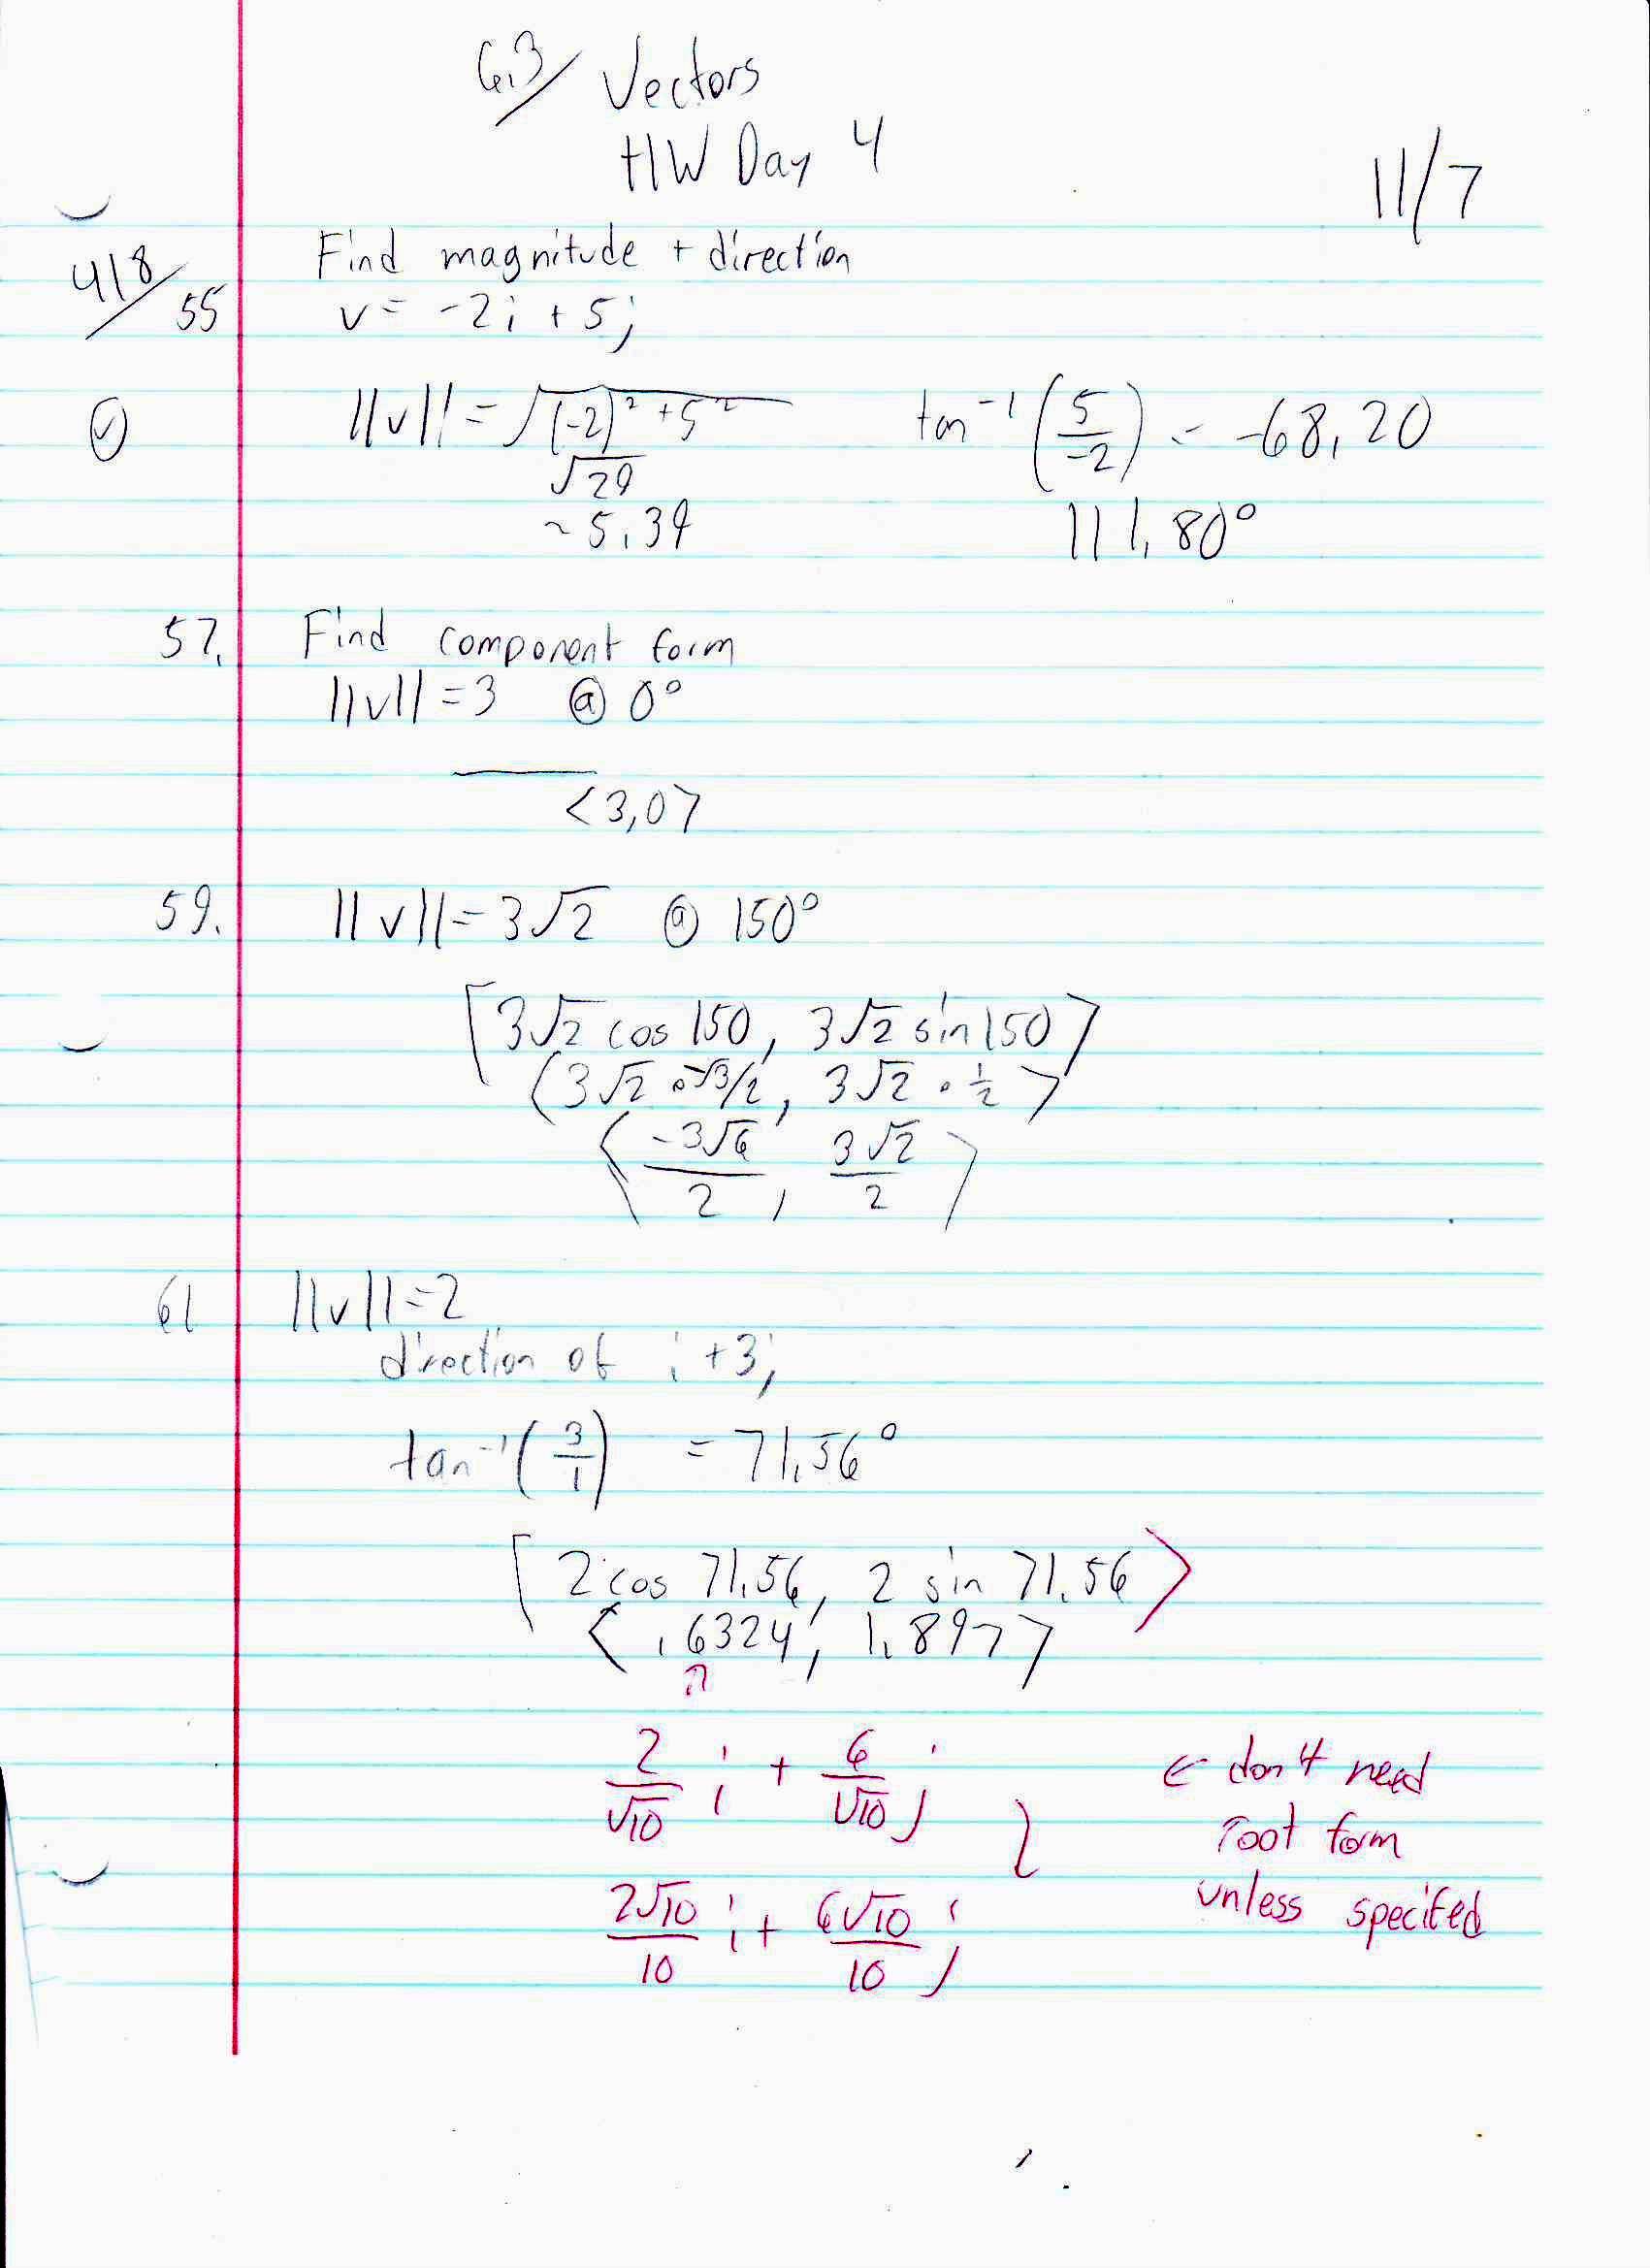 6.3/ Vectors
HW Day 4
11/7
418/55 Find magnitude + direction
v = -2i + 5j
||v|| = √(-2)² + 5² tan⁻¹(5/-2) = -68.20
√29 111.80°
~5.39
57. Find component form
||v|| = 3 @ 0°
<3,0>
59. ||v|| = 3√2 @ 150°
[3√2 cos 150, 3√2 sin 150>
(3√2 · -√3/2, 3√2 · 1/2>
<-3√6/2, 3√2/2>
61 ||v|| = 2
direction of i + 3j
tan⁻¹(3/1) = 71.56°
[2 cos 71.56, 2 sin 71.56>
<.6324, 1.897>
2/√10 i + 6/√10 j ← don't need
root form
unless specifed
2√10/10 i + 6√10/10 j